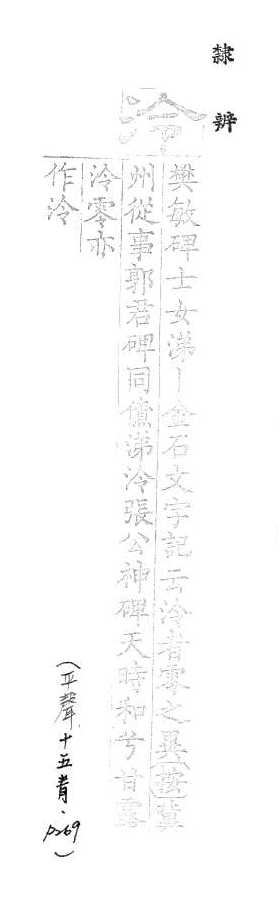 隸辨
泠
樊敏碑士女涕丨金石文字記云泠者零之異按冀
州從事郭君碑同儓涕泠張公神碑天時和兮甘露
泠零亦
作泠
(平聲.十五青.p269)